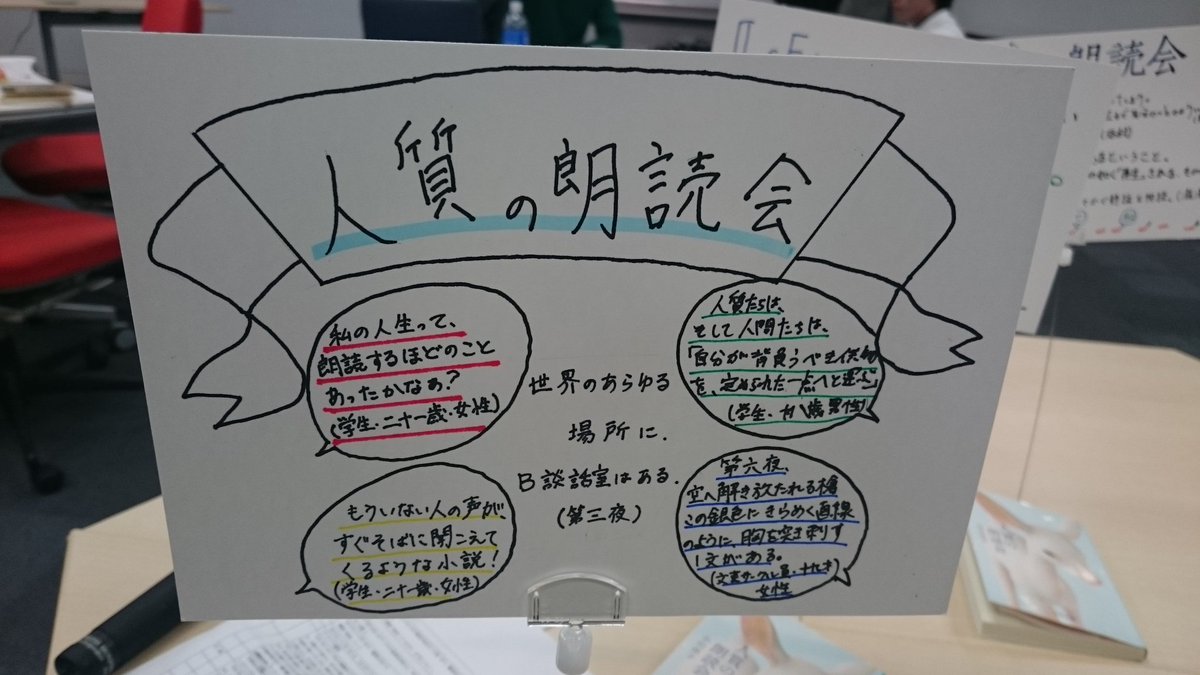 人質の朗読会
私の人生って、
朗読するほどのこと
あったかなぁ?
(学生・二十一歳・女性)
人質たちは、
そして人間たちは、
「自分が背負うべき供物
を、定められた一点へと運ぶ」
(学生・十八歳男性)
世界のあらゆる
場所に、
B談話室はある。
(第三夜)
もういない人の声が、
すぐそばに聞こえて
くるような小説!
(学生・二十一歳・女性)
第六夜、
空へ解き放たれる槍
この銀色にきらめく直線
のように、胸を突き刺す
1文がある。
女性
朗読会